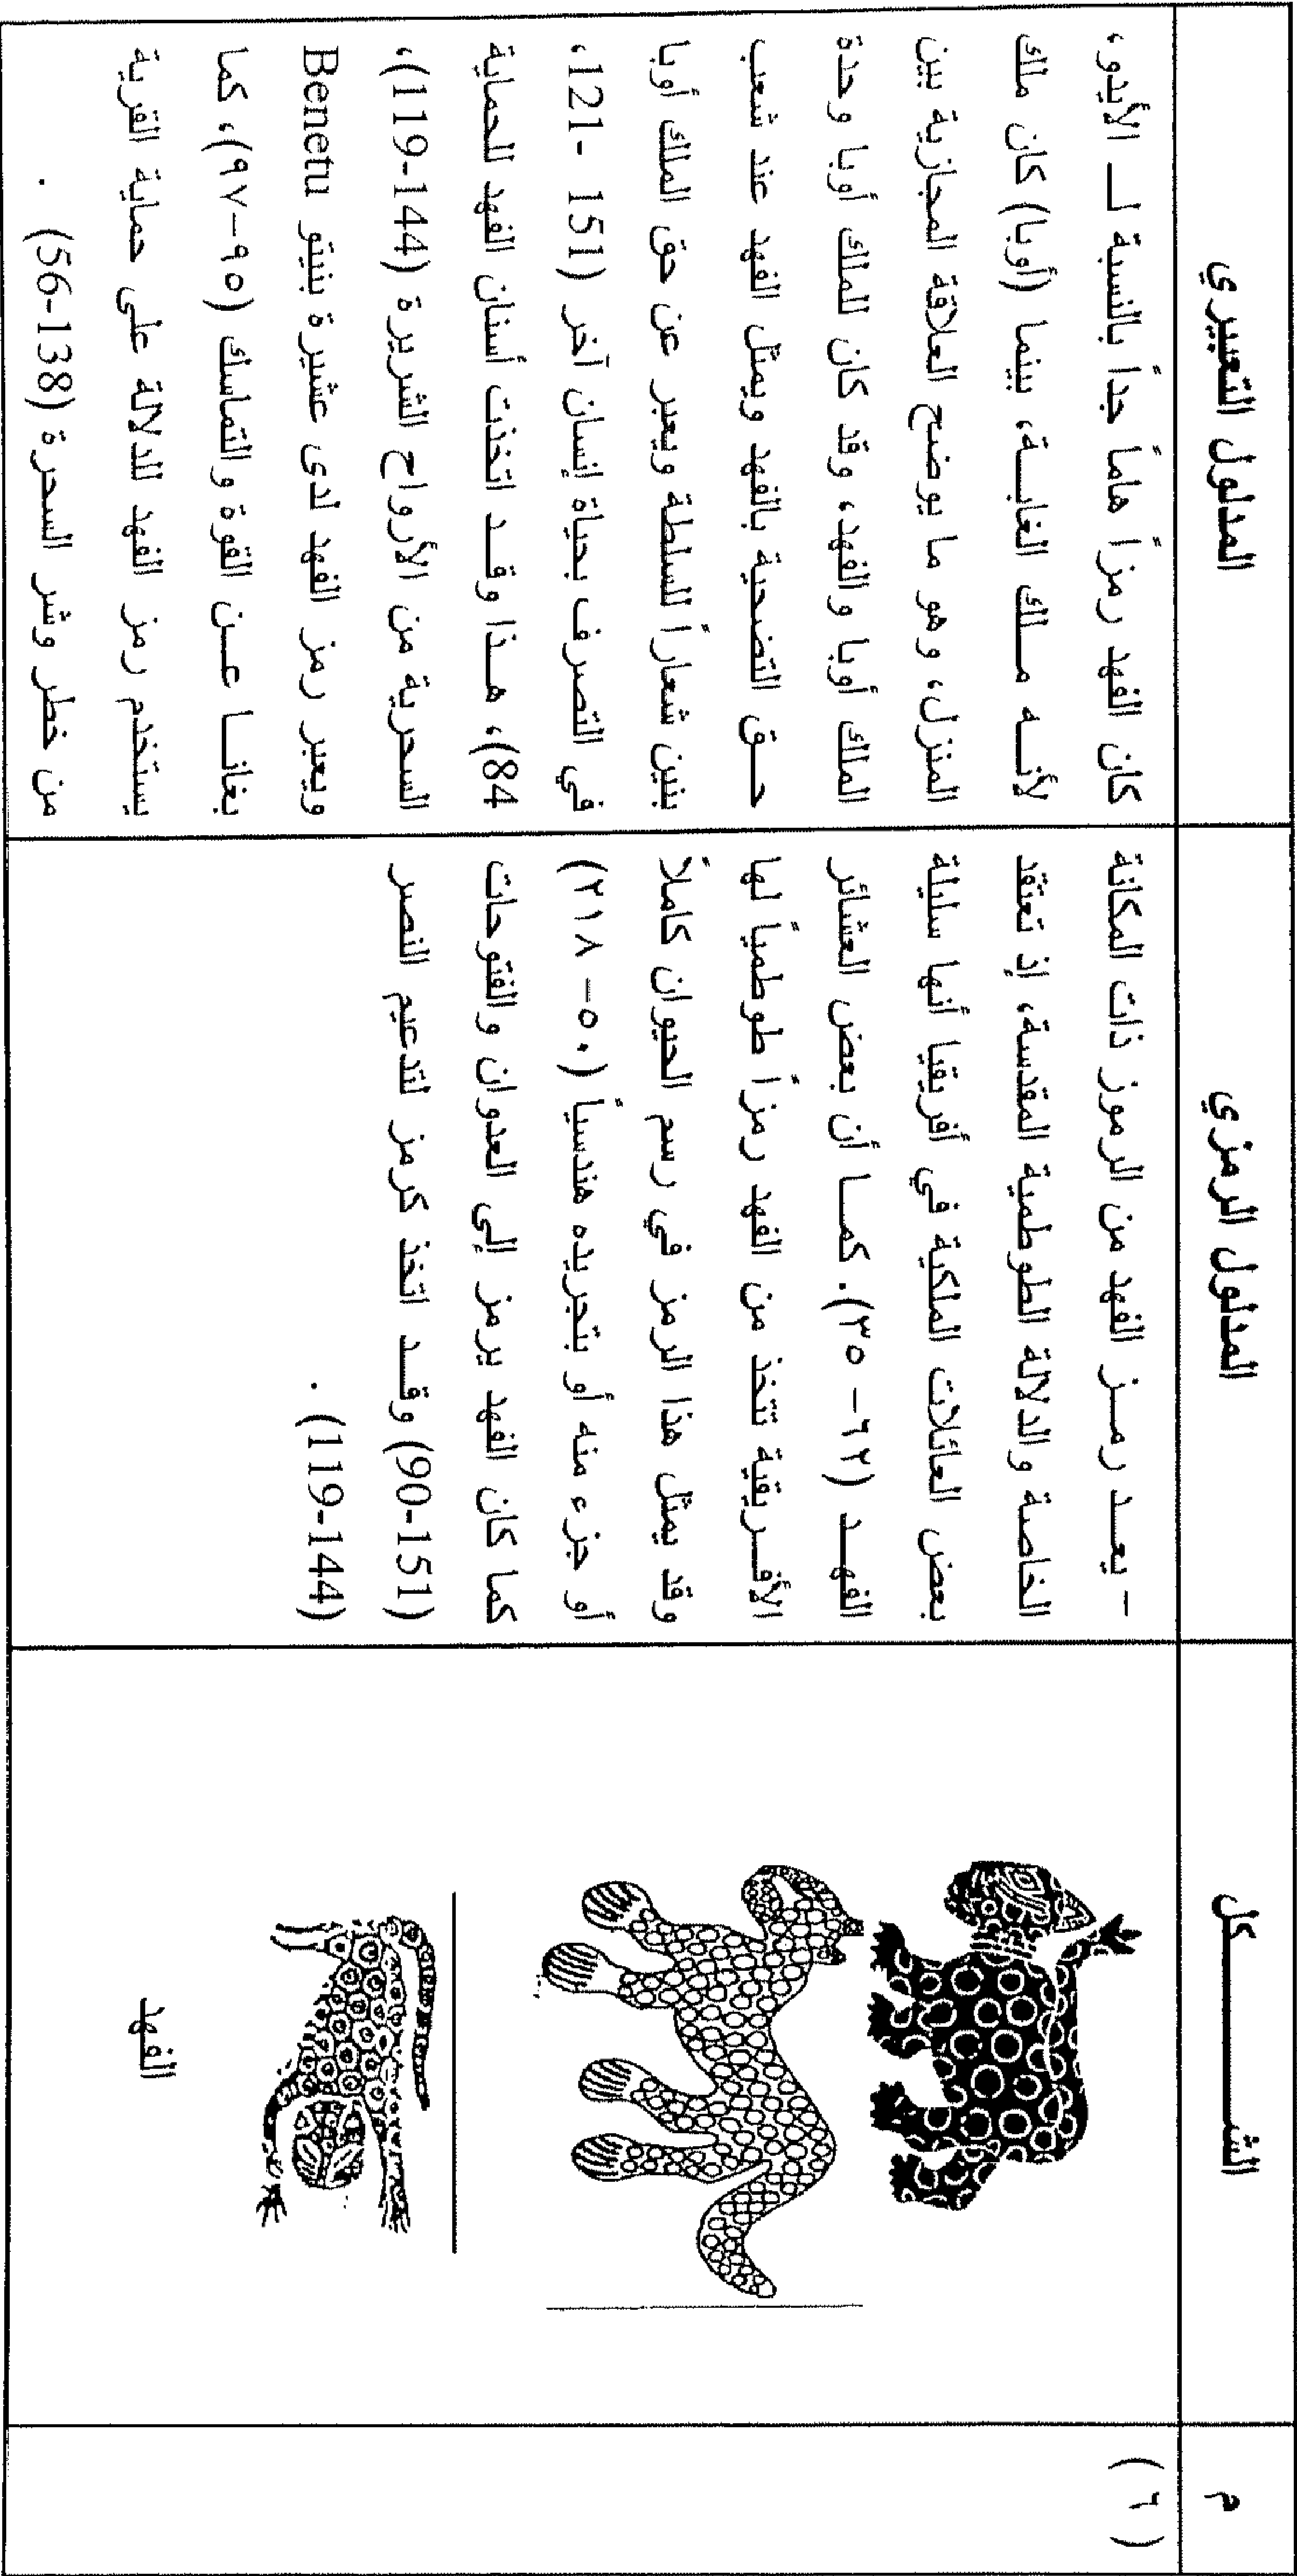 م
الشـــــــكل
المدلول الرمزي
المدلول التعبيري
( ٦ )
الفهد
– يعـــد رمـــز الفهد من الرموز ذات المكانة
الخاصة والدلالة الطوطمية المقدسة، إذ تعتقد
بعض العائلات الملكية في أفريقيا أنها سليلة
الفهـــد (٦٢– ٣٥). كمـــا أن بعض العشائر
الأفـــريقية تتخذ من الفهد رمزاً طوطمياً لها
وقد يمثل هذا الرمز في رسم الحيوان كاملاً
أو جزء منه أو بتجريده هندسياً (٥٠– ٢١٨)
كما كان الفهد يرمز إلى العدوان والفتوحات
(90-151) وقـــد اتخذ كرمز لتدعيم النصر
(119-144) .
كان الفهد رمزاً هاماً جداً بالنسبة لـــ الأيدو،
لأنـــه مـــلك الغابـــة، بينما (أوبا) كان ملك
المنزل، وهو ما يوضح العلاقة المجازية بين
الملك أوبا والفهد، وقد كان للملك أوبا وحدة
حـــق التضحية بالفهد ويمثل الفهد عند شعب
بنين شعاراً للسلطة ويعبر عن حق الملك أوبا
في التصرف بحياة إنسان آخر (151 -121،
84)، هـــذا وقـــد اتخذت أسنان الفهد للحماية
السحرية من الأرواح الشريرة (144-119)،
ويعبر رمز الفهد لدى عشيرة بنيتو Benetu
بغانـــا عـــن القوة والتماسك (٩٥–٩٧)، كما
يستخدم رمز الفهد للدلالة على حماية القرية
من خطر وشر السحرة (138-56) .